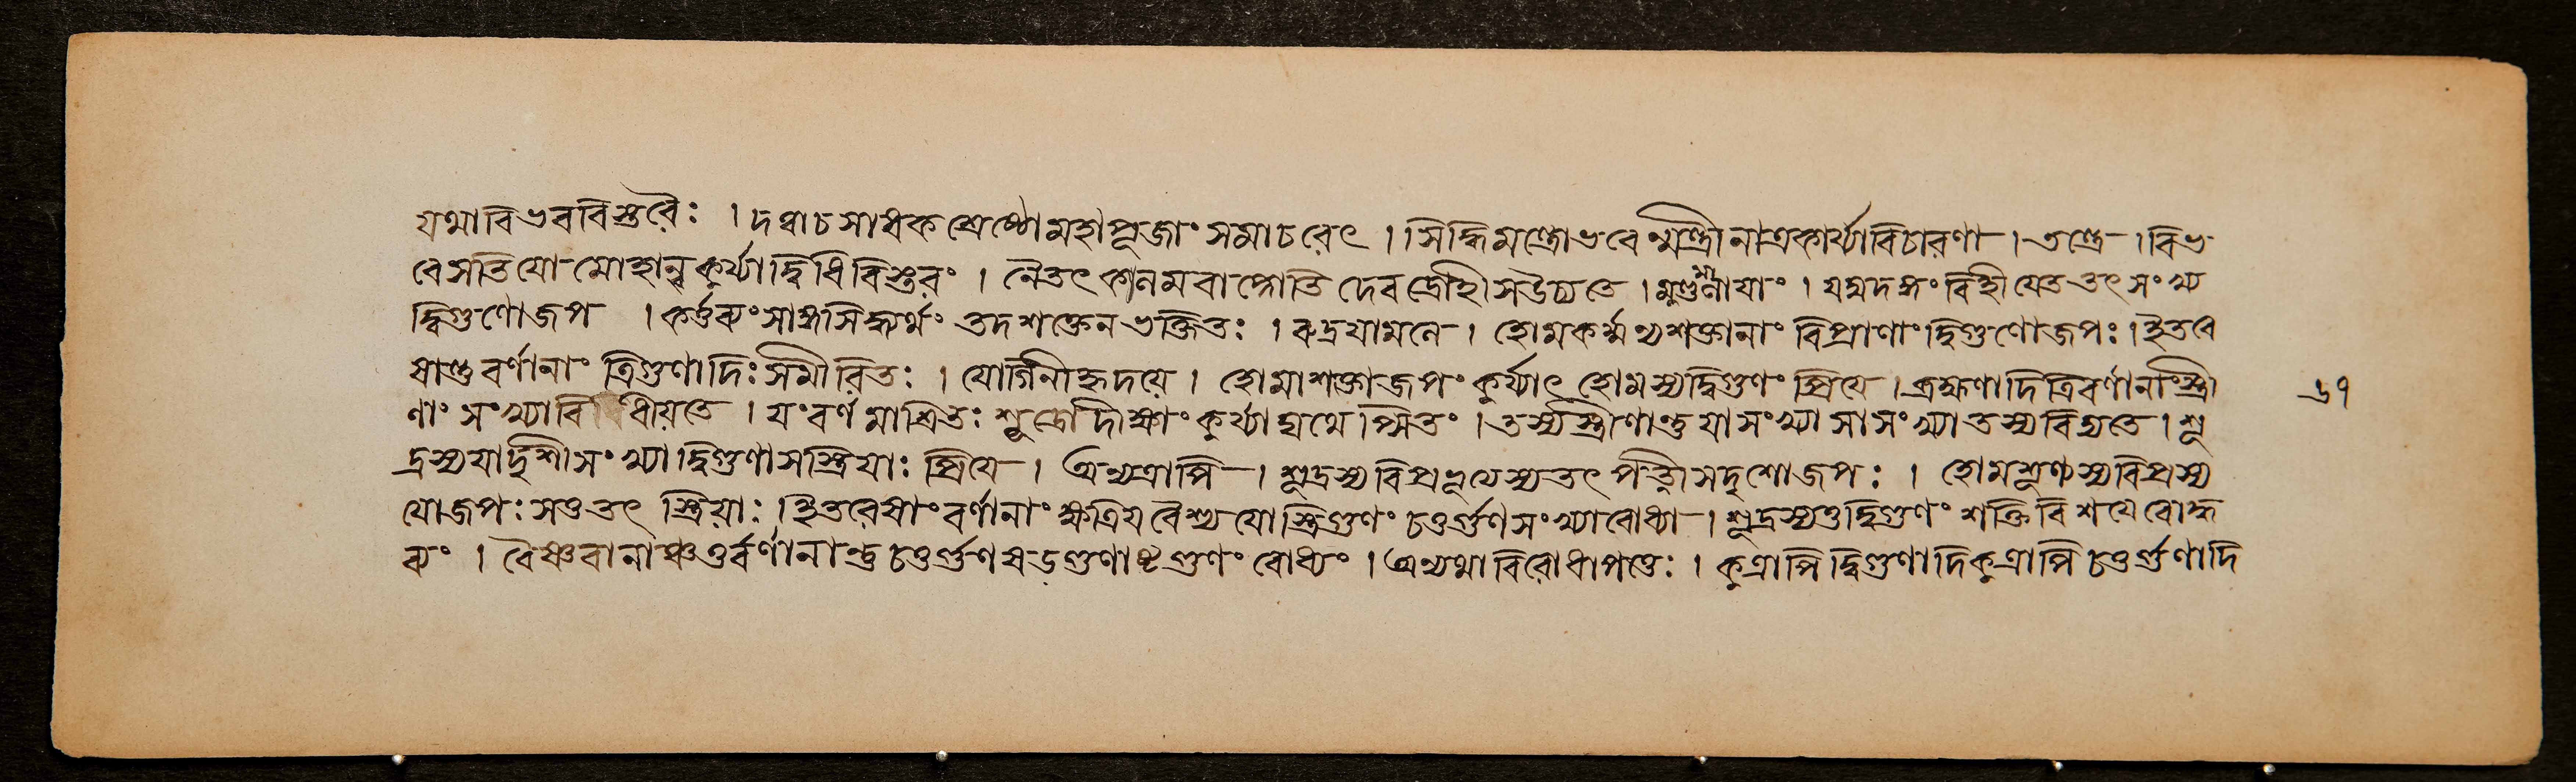 যথাবিভববিস্তরৈঃ । দত্বাচসাধকশ্রেষ্ঠোমহাপূজাং সমাচরেৎ । সিদ্ধিমন্ত্রোভবেন্মন্ত্রীনাত্রকার্য্যাবিচারণা । তন্ত্রে । বিভ
বেসতিযোমোহান্নকুর্য্যাদ্বিধিবিস্তরং । নৈতৎ ফলমবাপ্নোতি দেবদ্রোহীসউচ্যতে । মুণ্ডমালায়াং । যদ্যদঙ্গং বিহীয়েত তৎ সংখ্য
দ্বিগুণোজপ । কর্ত্তব্যংসাঙ্গসিদ্ধ্যর্থং তদশক্তেন ভক্তিতঃ । রুদ্রযামলে । হোমকর্ম্মণ্যশক্তানাং বিপ্রাণাং দ্বিগুণোজপঃ । ইতরে
ষান্তু বর্ণানাং ত্রিগুণাদিঃসমীরিতঃ । যোগিনীহৃদয়ে । হোমাশক্তোজপং কুর্য্যাৎ হোমস্যদ্বিগুণং প্রিয়ে । ব্রহ্মণাদিত্রিবর্ণানাংস্ত্রী
ণাং সংখ্যাবিধীয়তে । যংবর্ণমাশ্রিতঃ শূদ্রোদীক্ষাং কুর্য্যাদ্যথেপ্সিতং । তস্যস্ত্রীণান্তুযাসংখ্যা সাসংখ্যাতস্যবিদ্যতে । শূ
দ্রস্যযাদৃশীসংখ্যাদ্বিগুণাসস্ত্রিয়াঃ প্রিয়ে । অন্যত্রাপি । শূদ্রস্যবিপ্রভৃত্যস্যতৎ পত্নীসদৃশোজপঃ । হোমশূণ্যস্যবিপ্রস্য
যোজপঃসওতৎ স্ত্রিয়াঃ । ইতরেষাংবর্ণানাং ক্ষত্রিয়বৈশ্যযোস্ত্রিগুণং চতুর্গুণসংখ্যাবোধ্যা । শূদ্রস্যতুদ্বিগুণং শক্তিবিশয়েবোদ্ধ
ব্যং । বৈষ্ণবানাঞ্চতুর্বর্ণানান্তুচতুর্গুণষড়্গুণাষ্টগুণং বোধ্যং । অন্যথাবিরোধাপত্তেঃ । কুত্রাপিদ্বিগুণাদিকুত্রাপিচতুর্গুণাদি
৬৭